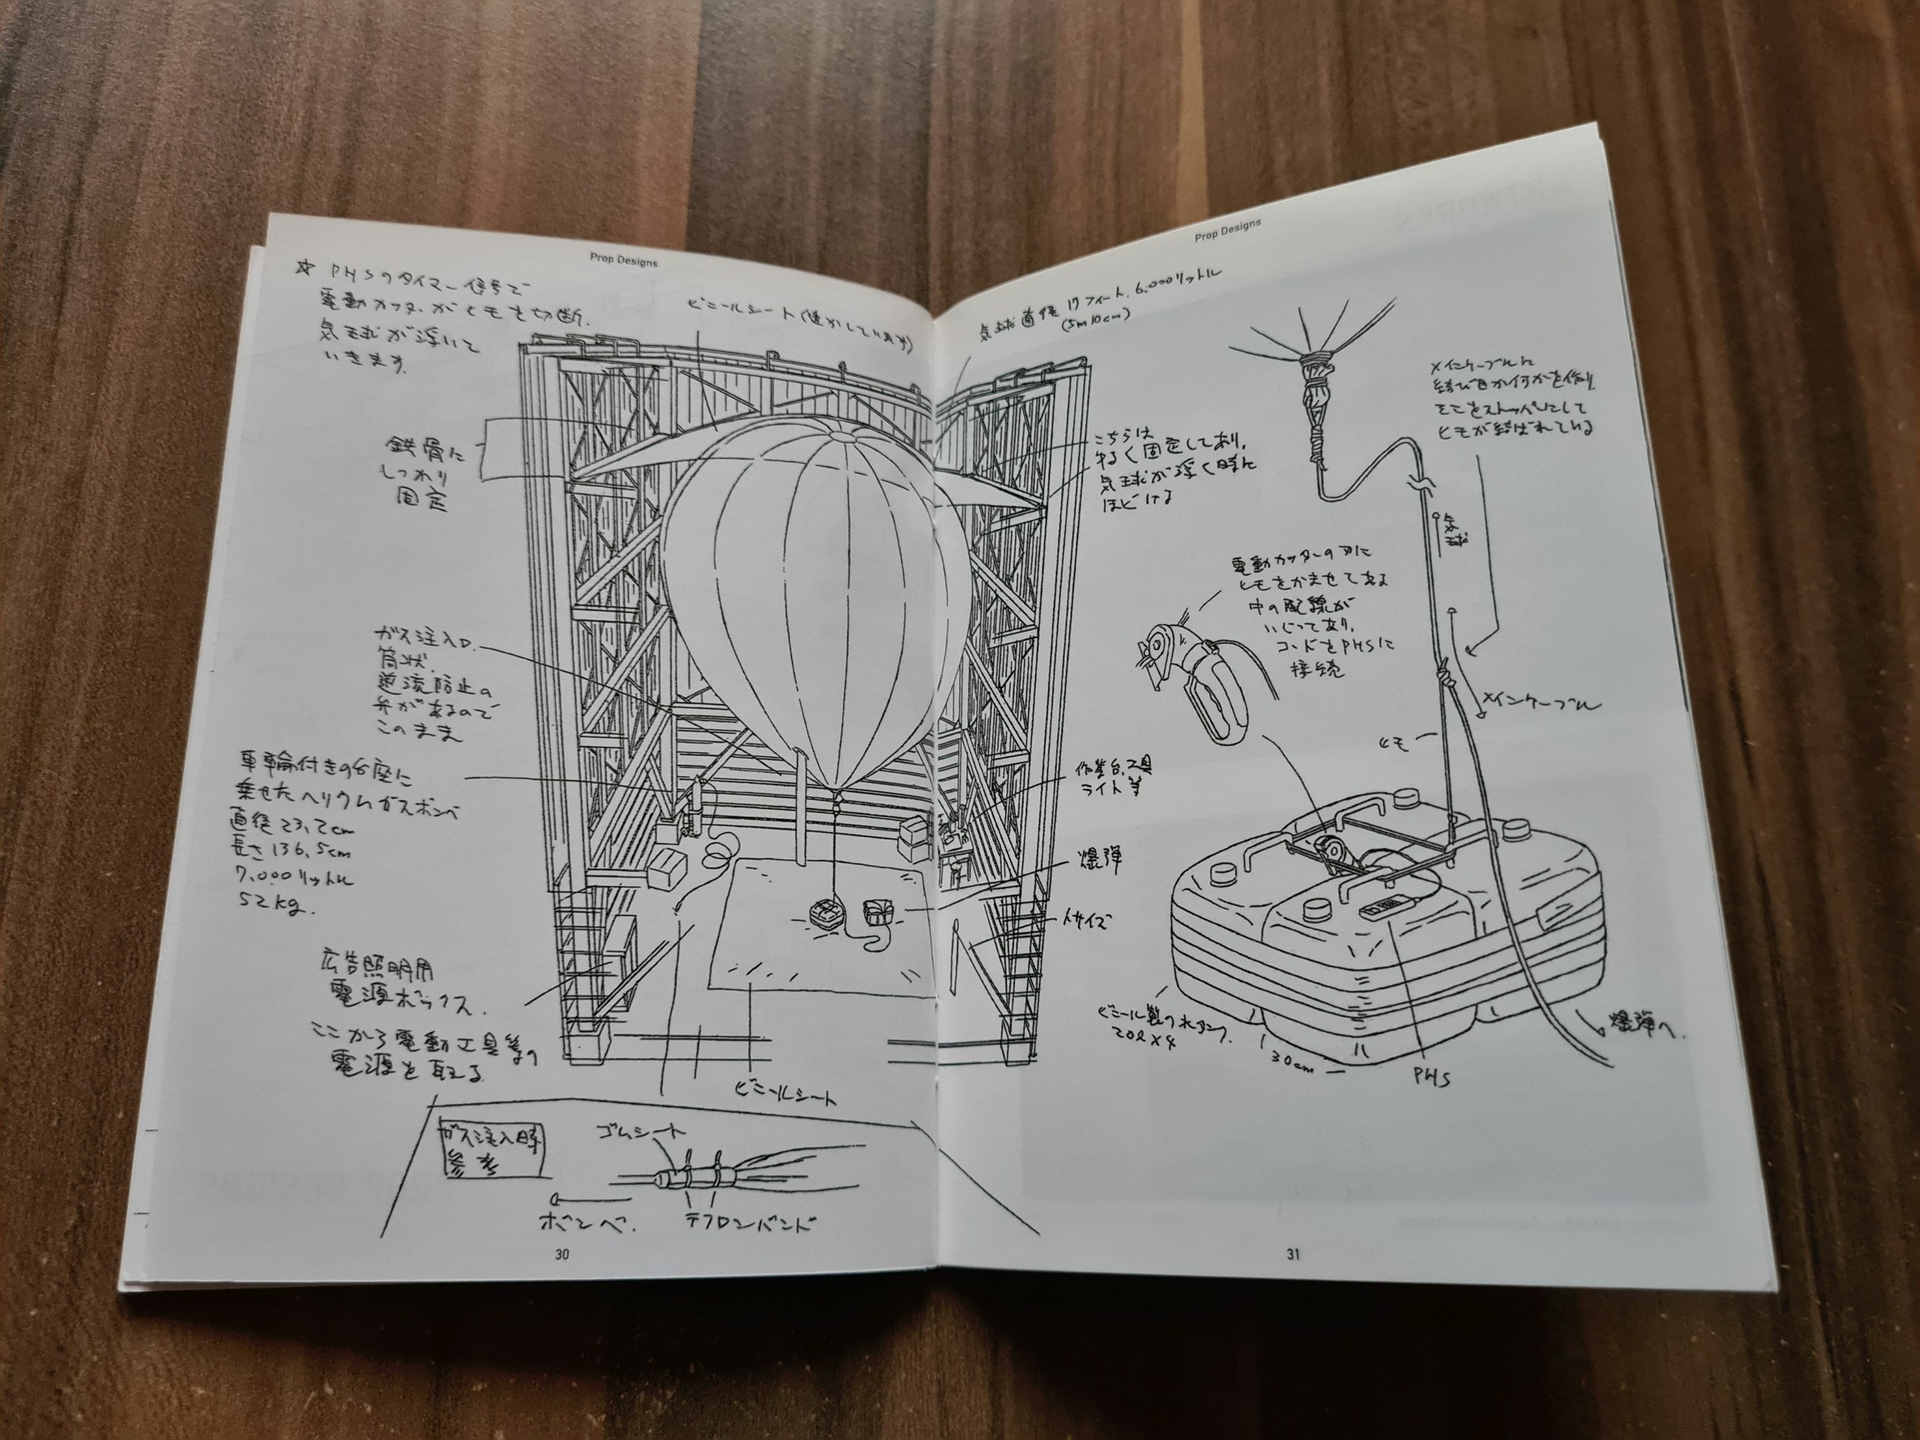 Prop Designs
☆ PHSのタイマー信号で
電動カッターがヒモを切断.
気球が浮いて
いきます.
ビニールシート(透かしています)
鉄骨に
しっかり
固定
ガス注入口.
筒状.
逆流防止の
弁があるので
このまま
車輪付きの台座に
乗せたヘリウムガスボンベ
直径23.2cm
長さ136.5cm
7,000リットル
52kg.
広告照明用
電源ボックス.
ここから電動工具等の
電源を取る
ビニールシート
ガス注入時
参考
ゴムシート
ボンベ.
テフロンバンド
30
Prop Designs
気球直径17フィート.6,000リットル
(5m10cm)
こちらは
ゆるく固定してあり,
気球が浮く時に
ほどける
作業台,工具
ライト等
爆弾
人サイズ
メインケーブルに
結び目か何かを作り
そこをストッパーにして
ヒモが結ばれている
気球
電動カッターの刃に
ヒモをかませてある
中の配線が
いじってあり,
コードをPHSに
接続
メインケーブル
ヒモ
ビニール製の水タンク.
20ℓ×4
30cm
PHS
爆弾へ.
31